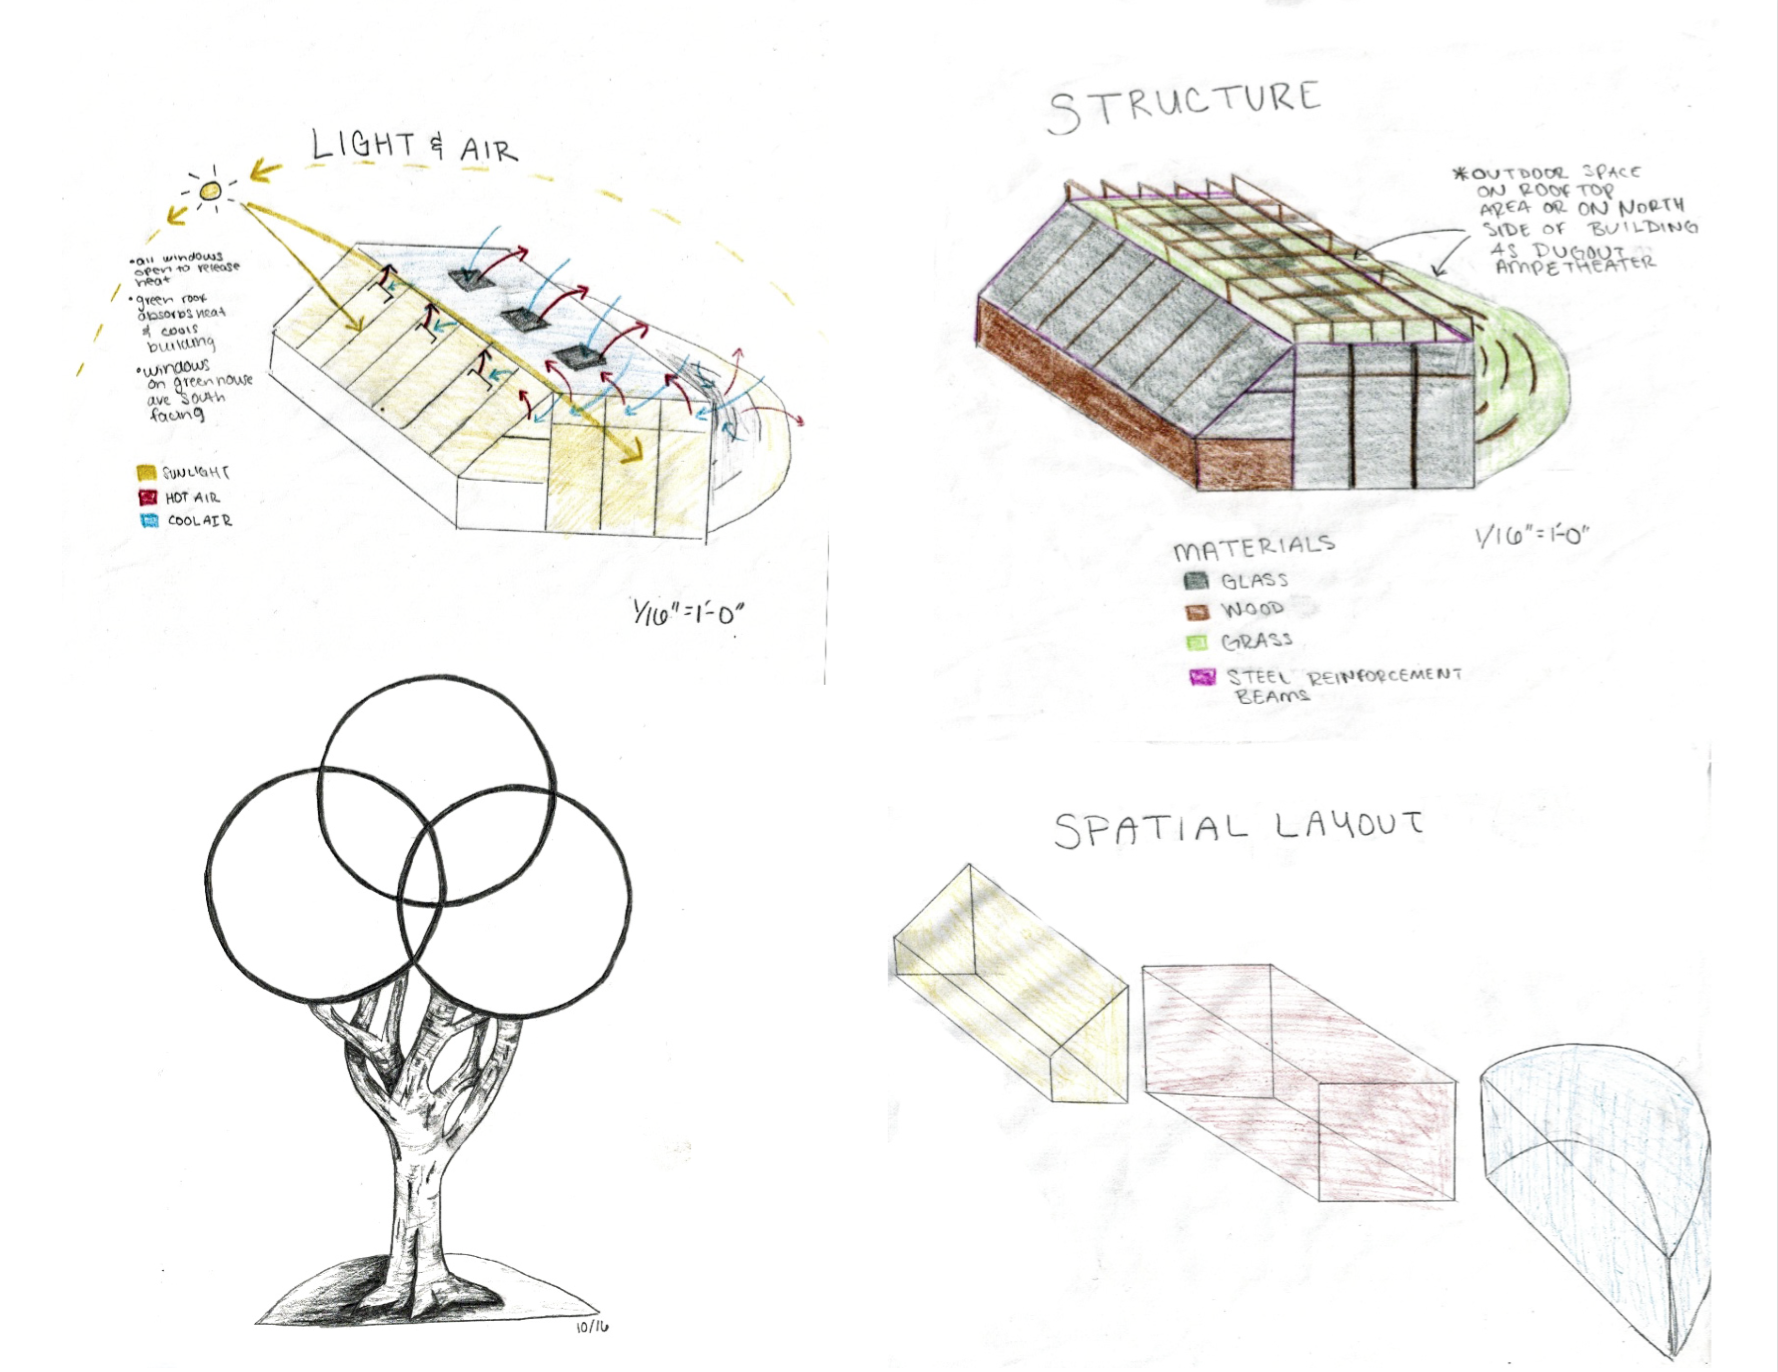 LIGHT & AIR
•all windows
open to release
heat
•green roof
absorbs heat
& cools
building
•windows
on greenhouse
are south
facing
SUNLIGHT
HOT AIR
COOL AIR
1/16"=1'-0"
STRUCTURE
*OUTDOOR SPACE
ON ROOFTOP
AREA OR ON NORTH
SIDE OF BUILDING
AS DUGOUT
AMPETHEATER
1/16"=1'-0"
MATERIALS
GLASS
WOOD
GRASS
STEEL REINFORCEMENT
BEAMS
10/16
SPATIAL LAYOUT